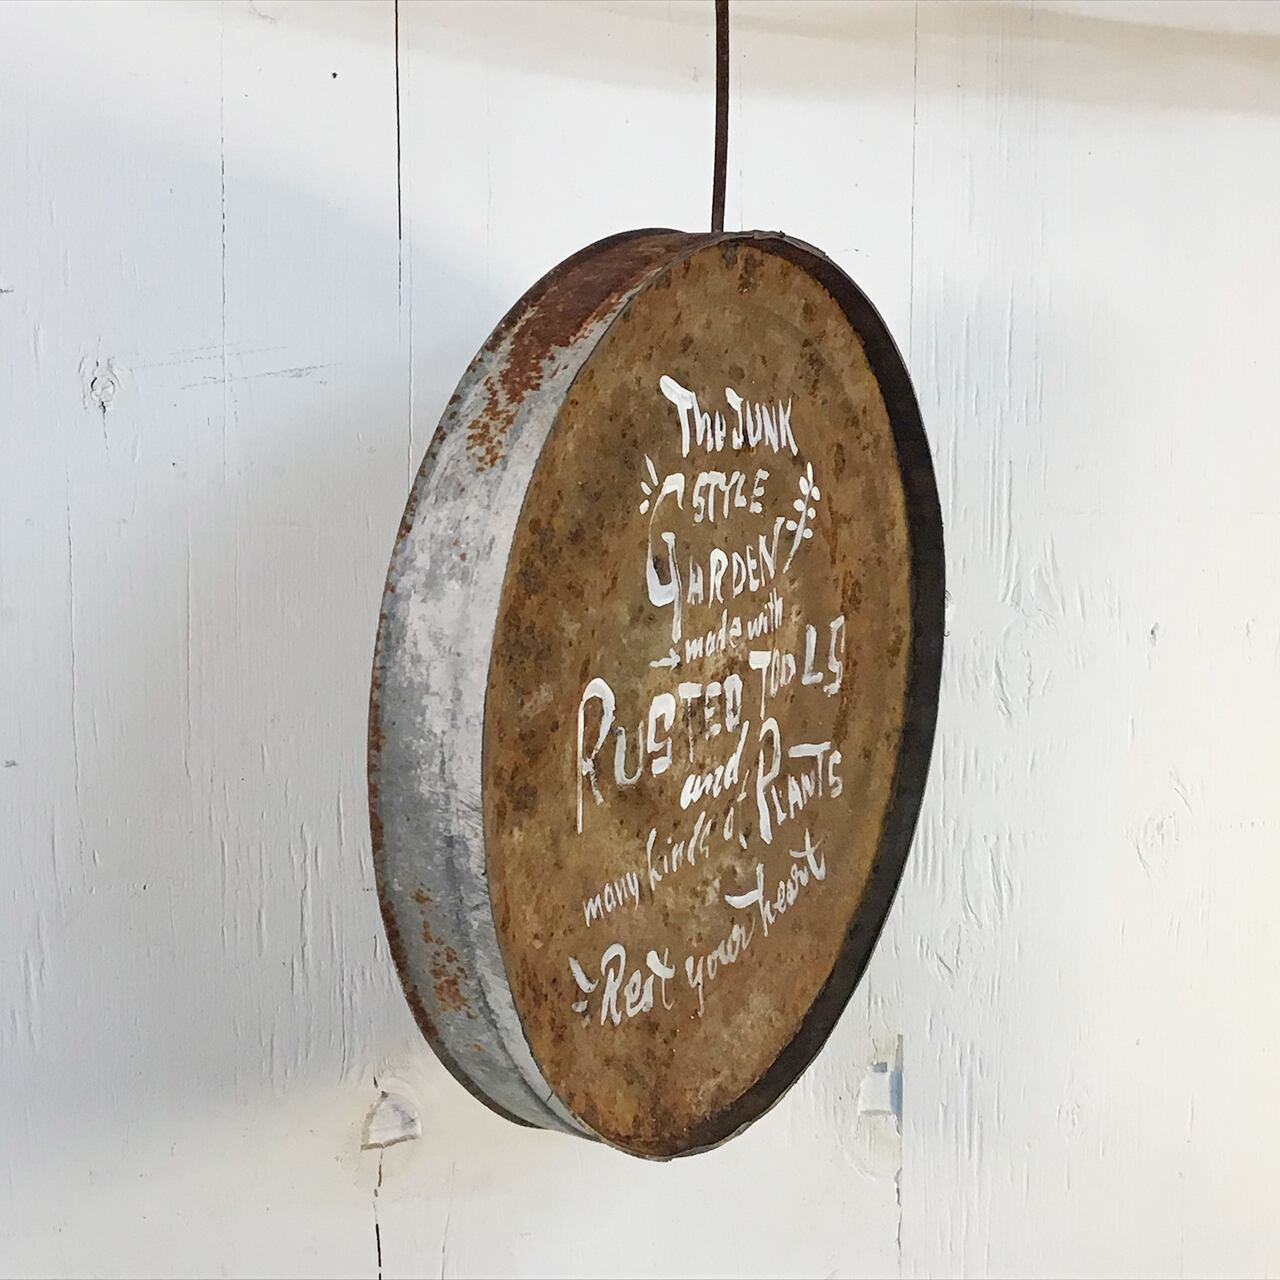 The JUNK
STYLE
GARDEN
made with
RUSTED TOOLS
and PLANTS
many kinds of
Rest your heart